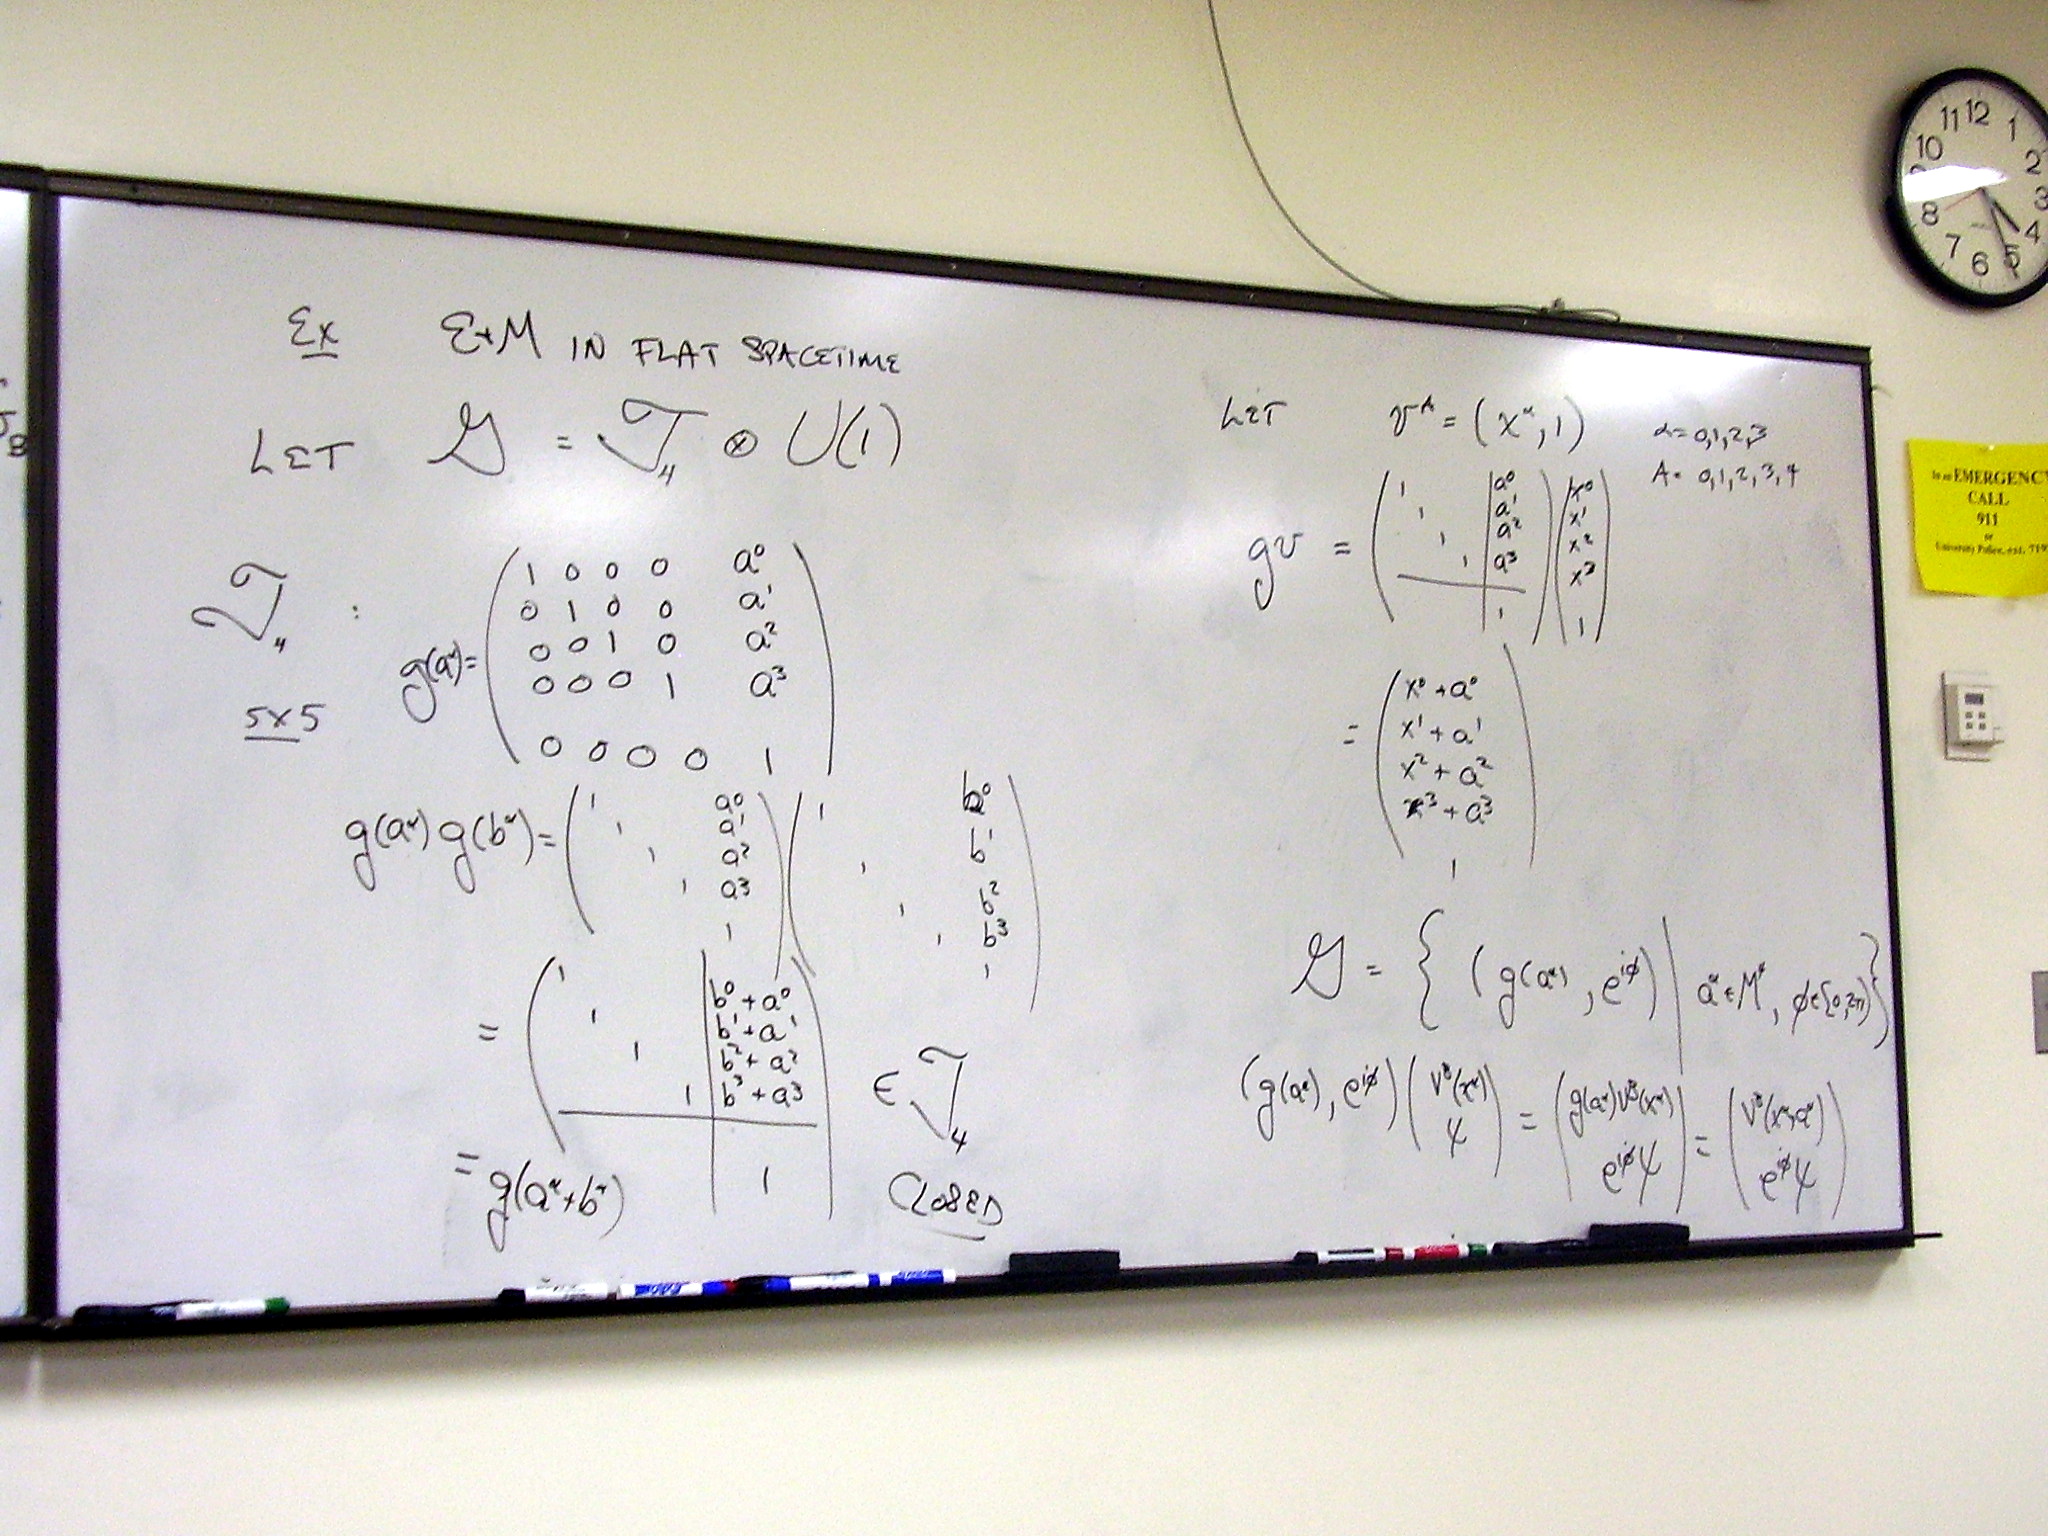 Ex E+M IN FLAT SPACETIME
LET 𝒢 = 𝒯₄ ⊗ U(1)
𝒯₄ :
5x5
g(aᵅ) =
1 0 0 0 a⁰
0 1 0 0 a¹
0 0 1 0 a²
0 0 0 1 a³
0 0 0 0 1
g(aᵅ) g(bᵅ) =
1 a⁰
1 a¹
1 a²
1 a³
1
1 b⁰
1 b¹
1 b²
1 b³
1
=
1 b⁰ + a⁰
1 b¹ + a¹
1 b² + a²
1 b³ + a³
1
∈ 𝒯₄
= g(aᵅ + bᵅ)
CLOSED
LET vᴬ = (xᵅ, 1) α = 0,1,2,3
A = 0,1,2,3,4
gv =
1 a⁰
1 a¹
1 a²
1 a³
1
x⁰
x¹
x²
x³
1
=
x⁰ + a⁰
x¹ + a¹
x² + a²
x³ + a³
1
𝒢 = { (g(aᵅ), e^{iφ}) | aᵅ ∈ M⁴, φ ∈ [0, 2π) }
(g(aᵅ), e^{iφ}) ( Vᴮ(xᵅ) ψ ) = ( g(aᵅ)Vᴮ(xᵅ) e^{iφ}ψ ) = ( Vᴮ(xᵅ+aᵅ) e^{iφ}ψ )
11 12 1
10 2
3
8 4
7 6 5
In an EMERGENCY
CALL
911
or
University Police, ext.